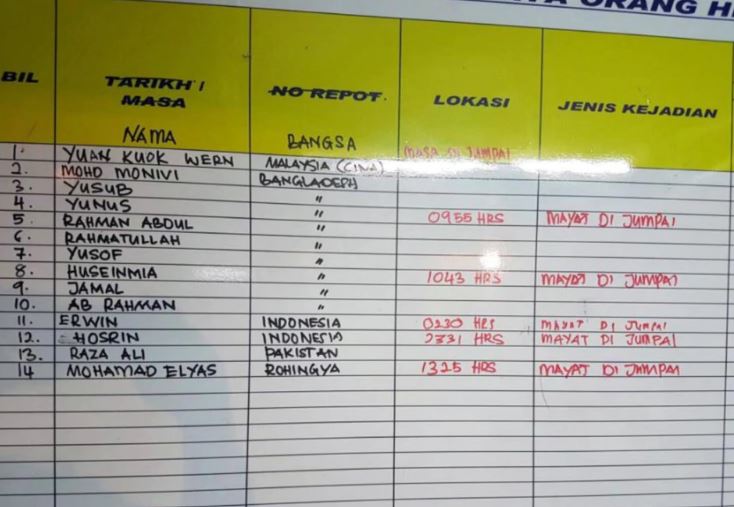 ORANG
BIL TARIKH / MASA NO REPOT. LOKASI JENIS KEJADIAN
NAMA BANGSA MASA DI JUMPAI
1. YUAN KUOK WERN MALAYSIA (CINA)
2. MOHD MONIVI BANGLADEPH
3. YUSUB "
4. YUNUS "
5. RAHMAN ABDUL " 0955 HRS MAYAT DI JUMPAI
6. RAHMATULLAH "
7. YUSOF "
8. HUSEINMIA " 1043 HRS MAYAT DI JUMPAI
9. JAMAL "
10. AB RAHMAN "
11. ERWIN INDONESIA 0230 HRS MAYAT DI JUMPAI
12. HOSRIN INDONESIA 2331 HRS MAYAT DI JUMPAI
13. RAZA ALI PAKISTAN
14 MOHAMAD ELYAS ROHINGYA 1325 HRS MAYAT DI JUMPAI